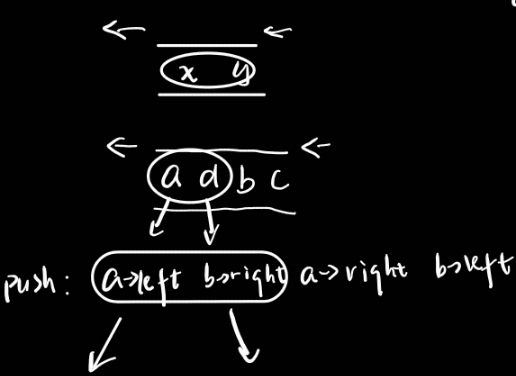 x y
a d b c
push: a->left b->right a->right b->left